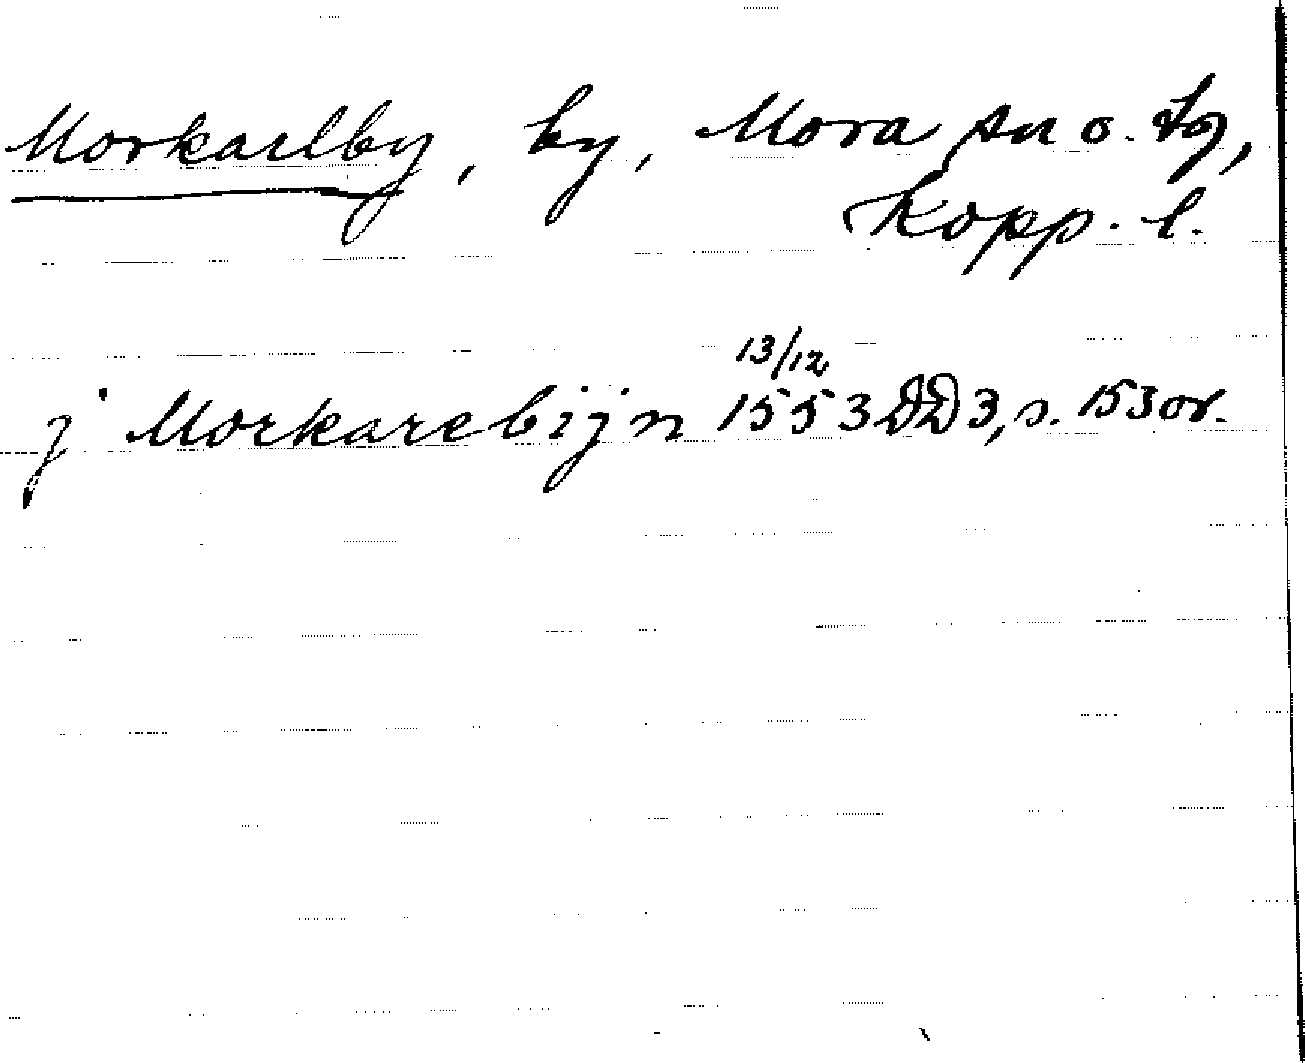 Morkarlby, by, Mora sn o. tg,
Kopp. l.
13/12
j Morkarebijn 1553 DD3, s. 153 or.